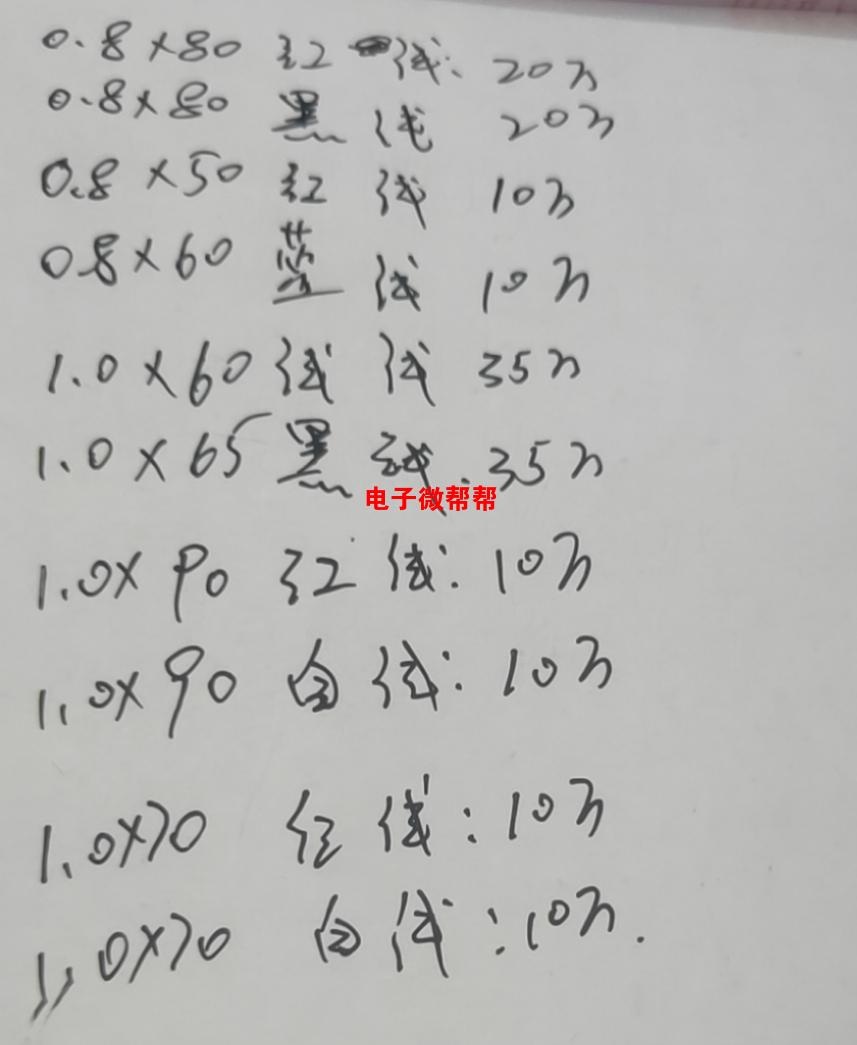 0.8×80 红 线: 20万
0.8×80 黑 线 20万
0.8×50 红 线 10万
0.8×60 蓝 线 10万
1.0×60 线 线 35万
1.0×65 黑 线. 35万
电子微帮帮
1.0×90 红 线: 10万
1.0×90 白 线: 10万
1.0×70 红 线: 10万
1.0×70 白 线: 10万.